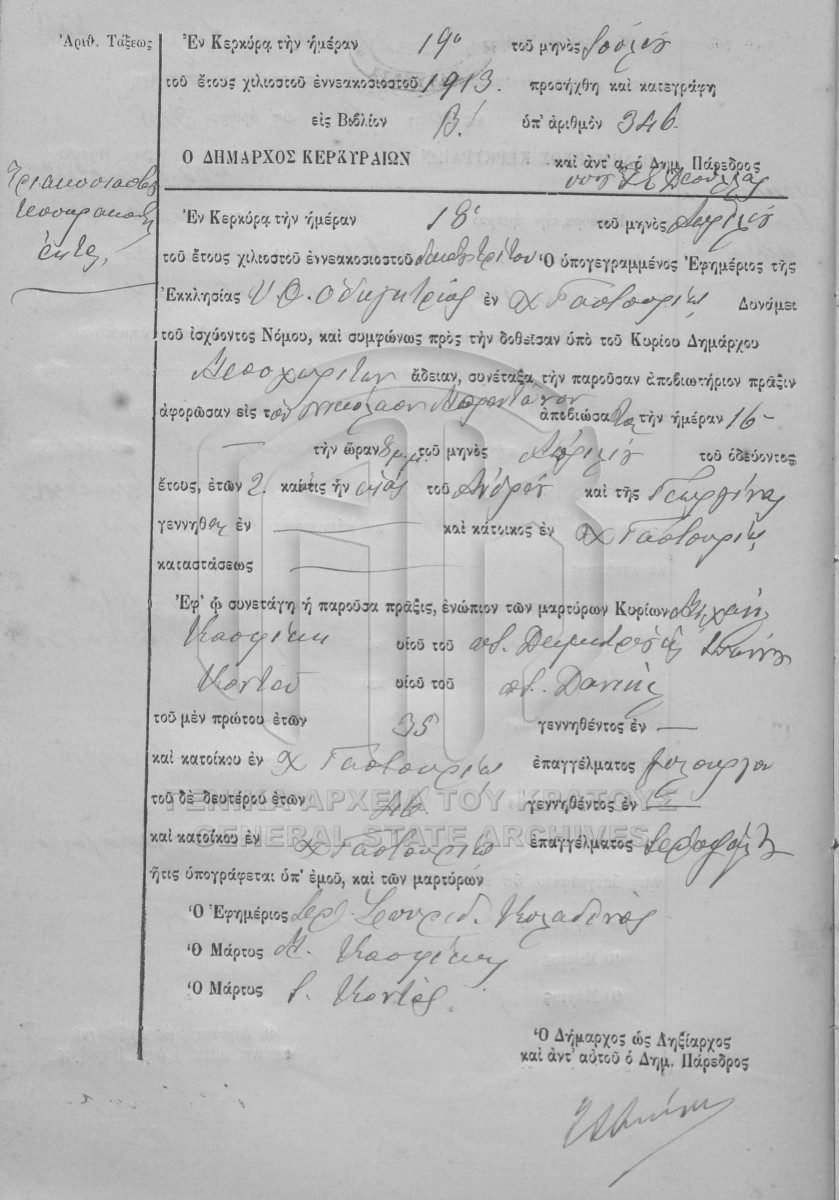 Ἀριθ. Τάξεως
Ἐν Κερκύρᾳ τὴν ἡμέραν 19ῃ τοῦ μηνὸς
τοῦ ἔτους χιλιοστοῦ ἐννεακοσιοστοῦ 1913. προσήχθη καὶ κατεγράφη
εἰς Βιβλίον Β! ὑπ' ἀριθμὸν 346
Ο ΔΗΜΑΡΧΟΣ ΚΕΡΚΥΡΑΙΩΝ καὶ ἀντ' α. ὁ Δημ. Πάρεδρος
Τριακοσιοστὸς
τεσσαρακοστὸς
ἕκτος,
Ἐν Κερκύρᾳ τὴν ἡμέραν 18ῃ τοῦ μηνὸς Ἀπριλίου
τοῦ ἔτους χιλιοστοῦ ἐννεακοσιοστοῦ δεκάτου τρίτου Ὁ ὑπογεγραμμένος Ἐφημέριος τῆς
Ἐκκλησίας Υ. Θ. Ὁδηγητρίας ἐν χ Γαστουρίῳ Δυνάμει
τοῦ ἰσχύοντος Νόμου, καὶ συμφώνως πρὸς τὴν δοθεῖσαν ὑπὸ τοῦ Κυρίου Δημάρχου
ἄδειαν, συνέταξα τὴν παροῦσαν ἀποβιωτήριον πρᾶξιν
ἀφορῶσαν εἰς τὸν Νικόλαον ἀποβιώσαντα τὴν ἡμέραν 16
τὴν ὥραν 8 μ.μ. τοῦ μηνὸς Ἀπριλίου τοῦ ὁδεύοντος
ἔτους, ἐτῶν 2. καὶ τις ἦν υἱὸς τοῦ Ἀνδρέου καὶ τῆς Γεωργίνας
γεννηθεὶς ἐν καὶ κάτοικος ἐν χ Γαστουρίῳ
καταστάσεως
Ἐφ' ᾧ συνετάγη ἡ παροῦσα πρᾶξις, ἐνώπιον τῶν μαρτύρων Κυρίων Μιχαὴλ
Κασφίκη υἱοῦ τοῦ ποτ. Δημητρίου
Κοντοῦ υἱοῦ τοῦ ποτ. Δανιὴλ
τοῦ μὲν πρώτου ἐτῶν 35 γεννηθέντος ἐν
καὶ κατοίκου ἐν χ Γαστουρίῳ ἐπαγγέλματος
τοῦ δὲ δευτέρου ἐτῶν γεννηθέντος ἐν
ΓΕΝΙΚΑ ΑΡΧΕΙΑ ΤΟΥ ΚΡΑΤΟΥΣ
GENERAL STATE ARCHIVES
καὶ κατοίκου ἐν χ Γαστουρίῳ ἐπαγγέλματος
ἥτις ὑπογράφεται ὑπ' ἐμοῦ, καὶ τῶν μαρτύρων
Ὁ Ἐφημέριος Ἱερ. Σπυρίδ.
Ὁ Μάρτυς Μ. Κασφίκης
Ὁ Μάρτυς Κοντός.
Ὁ Δήμαρχος ὡς Ληξίαρχος
καὶ ἀντ' αὐτοῦ ὁ Δημ. Πάρεδρος